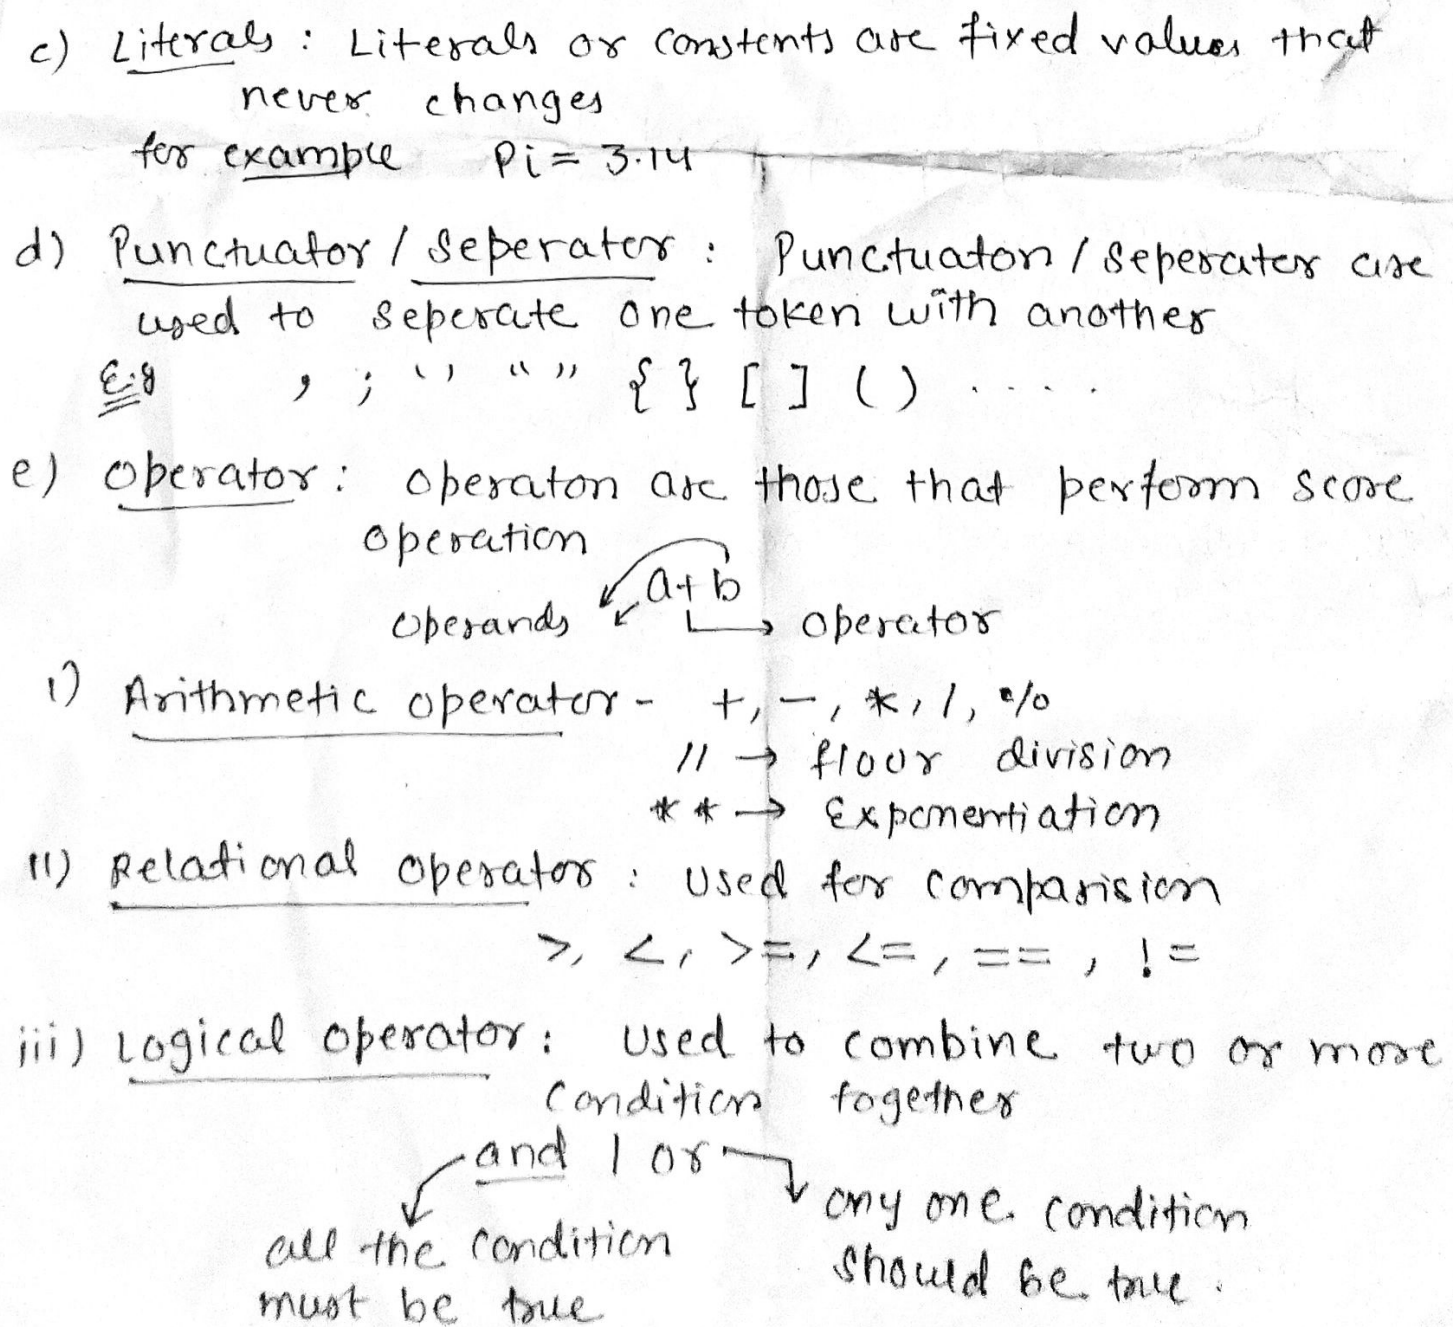 c) Literals : Literals or constents are fixed values that
never changes
for example Pi = 3.14
d) Punctuator / Seperator : Punctuators / Seperator are
used to seperate one token with another
E.g , ; ' ' " " { } [ ] ( ) ....
e) Operator : Operators are those that perform some
operation
a+b
operands operator
i) Arithmetic operator - +, -, *, /, %
// → floor division
** → Exponentiation
ii) Relational operator : Used for comparision
>, <, >=, <=, ==, !=
iii) Logical operator : Used to combine two or more
Condition together
and / or
any one condition
all the condition
should be true.
must be true